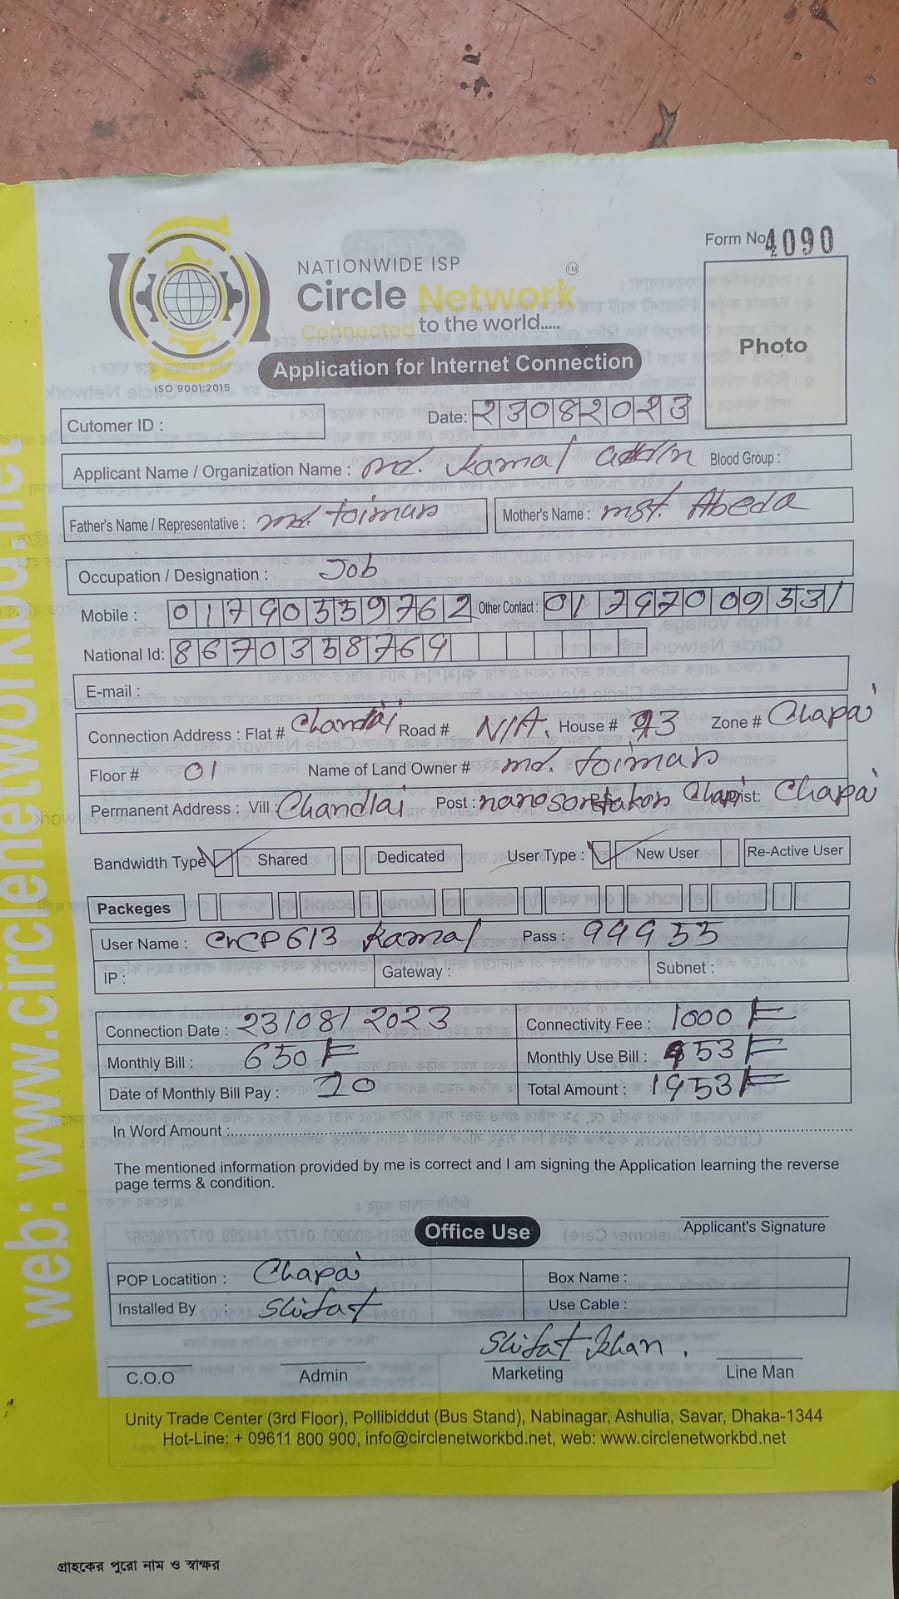 Form No 4090
NATIONWIDE ISP
Circle Network TM
Connected to the world.....
ISO 9001:2015
Application for Internet Connection
Photo
Cutomer ID :
Date: 23082023
Applicant Name / Organization Name : md. kamal uddin Blood Group :
Father's Name / Representative : md. toimur Mother's Name : mst. Abeda
Occupation / Designation : Job
Mobile : 01790559762 Other Contact : 01797009331
National Id: 8670358769
E-mail :
Connection Address : Flat # Chandlai Road # N/A. House # 93 Zone # Chapai
Floor # 01 Name of Land Owner # md. toimur
Permanent Address : Vill : Chandlai Post : Dist: Chapai
Bandwidth Type Shared Dedicated User Type : New User Re-Active User
Packeges
User Name : CNCP613 kamal Pass : 99955
IP : Gateway : Subnet :
Connection Date : 23/08/2023 Connectivity Fee : 1000
Monthly Bill : 650 Monthly Use Bill : 953
Date of Monthly Bill Pay : 10 Total Amount : 1953
In Word Amount :
The mentioned information provided by me is correct and I am signing the Application learning the reverse
page terms & condition.
Applicant's Signature
Office Use
POP Locatition : Chapai Box Name :
Installed By : Shifat Use Cable :
Shifat khan.
C.O.O Admin Marketing Line Man
Unity Trade Center (3rd Floor), Pollibiddut (Bus Stand), Nabinagar, Ashulia, Savar, Dhaka-1344
Hot-Line: + 09611 800 900, info@circlenetworkbd.net, web: www.circlenetworkbd.net
web: www.circlenetworkbd.net
গ্রাহকের পুরো নাম ও স্বাক্ষর